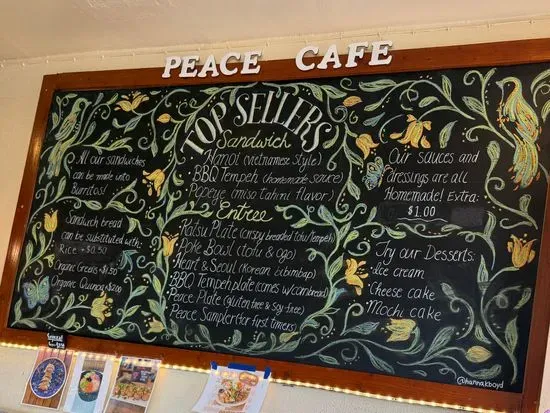 PEACE CAFE
TOP SELLERS
Sandwich
Hanoi (vietnamese style)
BBQ Tempeh (homemade sauce)
Popeye (miso tahini flavor)
Entree
Katsu Plate (crispy breaded tofu/tempeh)
Poke Bowl (tofu & ogo)
Heart & Seoul (Korean bibimbap)
BBQ Tempeh plate (comes w/cornbread)
Peace Plate (gluten free & Soy-free)
Peace Sampler (for first timers)
All our sandwiches
can be made into
Burritos!
Sandwich bread
can be substituted with:
Rice +$0.50
Organic Greens +$1.50
Organic Quinoa +$2.00
Our sauces and
Dressings are all
Homemade! Extra:
$1.00
Try our Desserts:
Ice cream
Cheese cake
Mochi cake
@hannakboyd